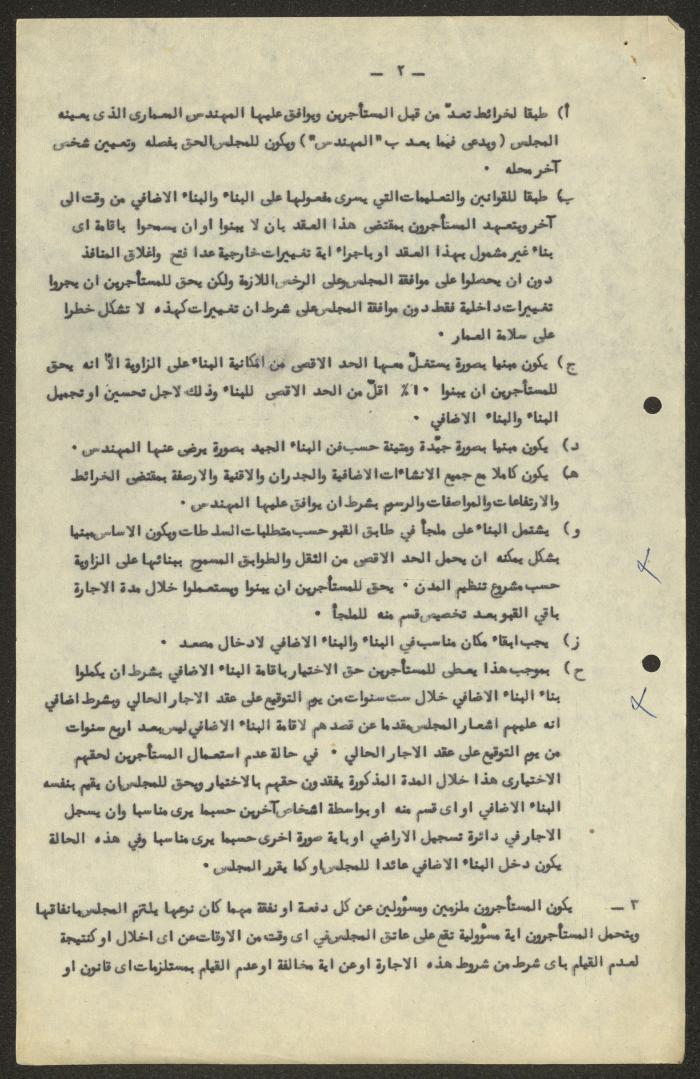 — ٢ —
أ) طبقا لخرائط تعدّ من قبل المستأجرين ويوافق عليها المهندس المعماري الذي يعينه
المجلس ( ويدعى فيما بعد ب "المهندس") ويكون للمجلس الحق بفصله وتعيين شخص
آخر محله .
ب) طبقا للقوانين والتعليمات التي يسرى مفعولها على البناء والبناء الاضافي من وقت الى
آخر ويتعهد المستأجرون بمقتضى هذا العقد بان لا يبنوا او ان يسمحوا باقامة اى
بناء غير مشمول بهذا العقد او باجراء اية تغييرات خارجية عدا فتح واغلاق المنافذ
دون ان يحصلوا على موافقة المجلس وعلى الرخص اللازمة ولكن يحق للمستأجرين ان يجروا
تغييرات داخلية فقط دون موافقة المجلس على شرط ان تغييرات كهذه لا تشكل خطرا
على سلامة العمار .
ج) يكون مبنيا بصورة يستغلّ معها الحد الاقصى من امكانية البناء على الزاوية الاّ انه يحق
للمستأجرين ان يبنوا ١٠٪ اقلّ من الحد الاقصى للبناء وذلك لاجل تحسين او تجميل
البناء والبناء الاضافي .
د) يكون مبنيا بصورة جيّدة ومتينة حسب فن البناء الجيد بصورة يرضى عنها المهندس .
هـ) يكون كاملا مع جميع الانشاءات الاضافية والجدران والاقنية والارصفة بمقتضى الخرائط
والارتفاعات والمواصفات والرسوم بشرط ان يوافق عليها المهندس .
و) يشتمل البناء على ملجأ في طابق القبو حسب متطلبات السلطات ويكون الاساس مبنيا
بشكل يمكنه ان يحمل الحد الاقصى من الثقل والطوابق المسموح ببنائها على الزاوية
حسب مشروع تنظيم المدن . يحق للمستأجرين ان يبنوا ويستعملوا خلال مدة الاجارة
باقي القبو بعد تخصيص قسم منه للملجأ .
ز) يجب ابقاء مكان مناسب في البناء والبناء الاضافي لادخال مصعد .
ح) بموجب هذا يعطى للمستأجرين حق الاختيار باقامة البناء الاضافي بشرط ان يكملوا
بناء البناء الاضافي خلال ست سنوات من يوم التوقيع على عقد الاجار الحالي وبشرط اضافي
انه عليهم اشعار المجلس مقدما عن قصدهم لاقامة البناء الاضافي ليس بعد اربع سنوات
من يوم التوقيع على عقد الاجار الحالي . في حالة عدم استعمال المستأجرين لحقهم
الاختيارى هذا خلال المدة المذكورة يفقدون حقهم بالاختيار ويحق للمجلس ان يقيم بنفسه
البناء الاضافي او اى قسم منه او بواسطة اشخاص آخرين حسبما يرى مناسبا وان يسجل
الاجار في دائرة تسجيل الاراضي او باية صورة اخرى حسبما يرى مناسبا وفي هذه الحالة
يكون دخل البناء الاضافي عائدا للمجلس او كما يقرر المجلس .
٣ — يكون المستأجرون ملزمين ومسؤولين عن كل دفعة او نفقة مهما كان نوعها يلتزم المجلس بانفاقها
ويتحمل المستأجرون اية مسؤولية تقع على عاتق المجلس في اى وقت من الاوقات عن اى اخلال او كنتيجة
لعدم القيام باى شرط من شروط هذه الاجارة او عن اية مخالفة او عدم القيام بمستلزمات اى قانون او